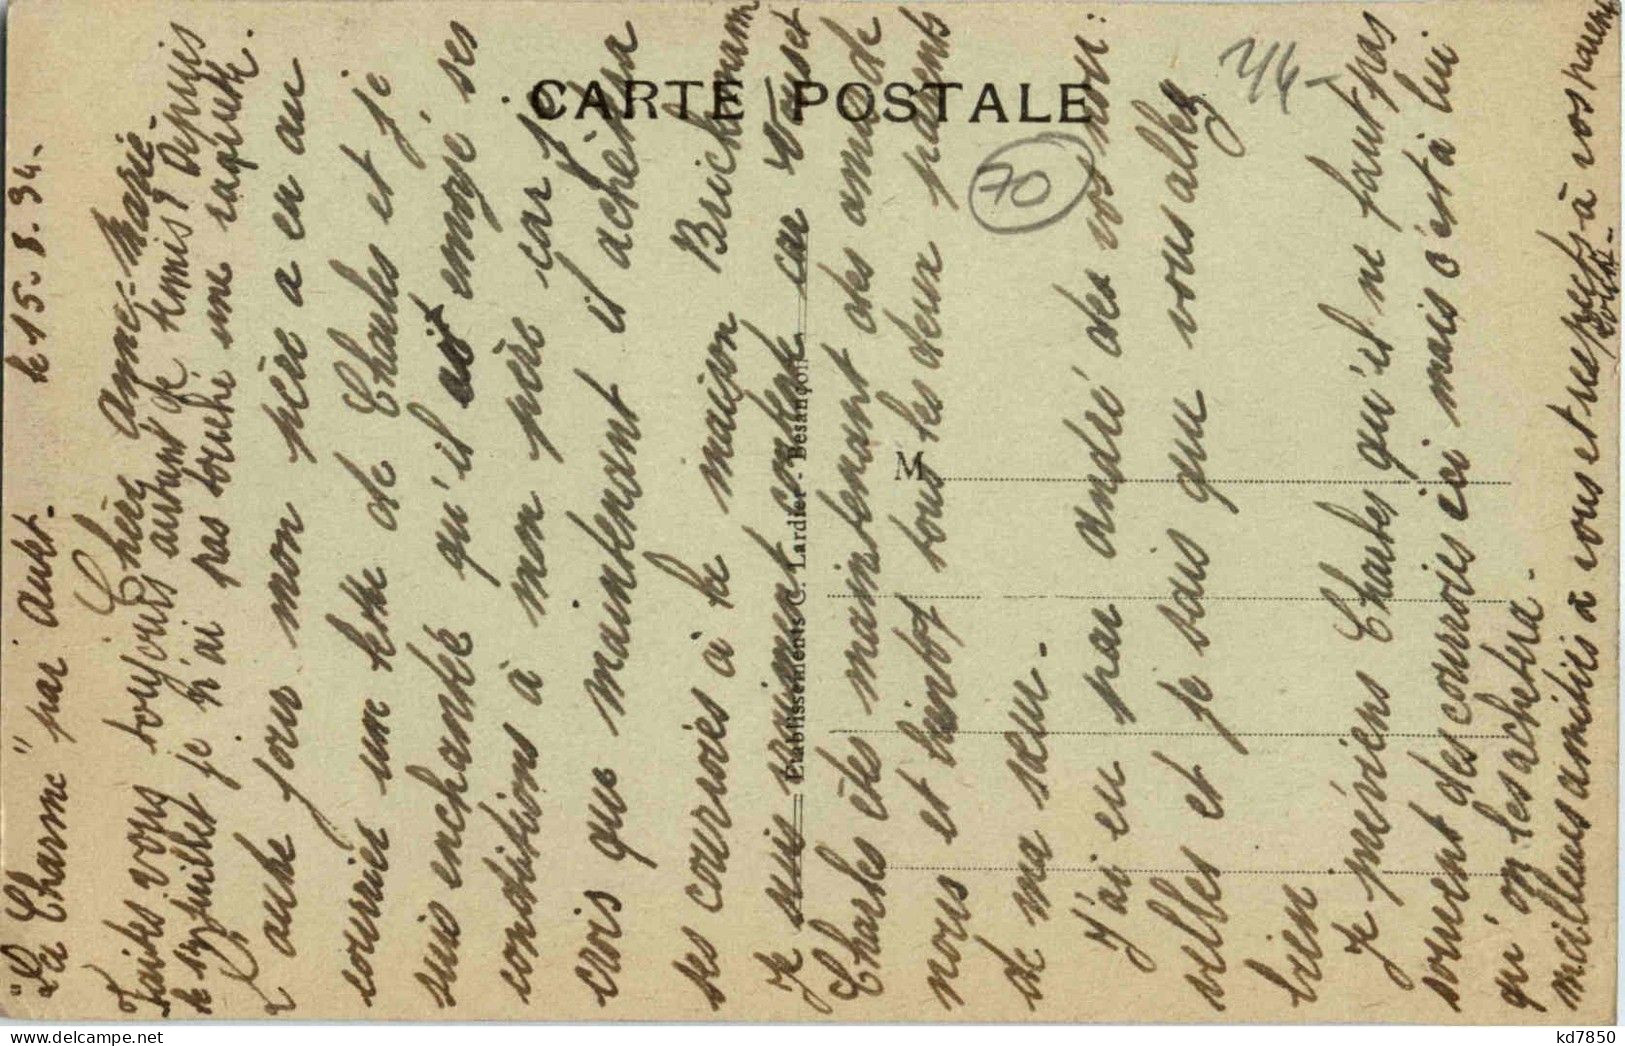 "La Charme" par Autet - le 15-8-34.
Chère Anne-Marie -
Faites vous toujours autant de tennis? Depuis
le 27 juillet je n'ai pas touché une raquette.
L'autre jour mon père a eu au
courrier une lettre de Charles et je
suis enchantée qu'il ait envoyé ses
conditions à mon père car je
crois que maintenant il achètera
ses courroies à la maison Brichmann
Je suis vraiment contente car vous et
Charles êtes maintenant des amis de
nous et bientôt tous les deux parents
de ma sœur.
J'ai eu par André des vos nou:
velles et je sais que vous allez
bien
Je préviens Charles qu'il ne faut pas
souvent des courroies ici mais c'est à lui
qu'on les achètera.
meilleures amitiés à vous et respects à vos parents
CARTE POSTALE
M
Etablissements C. Lardier - Besançon
70
kd7850